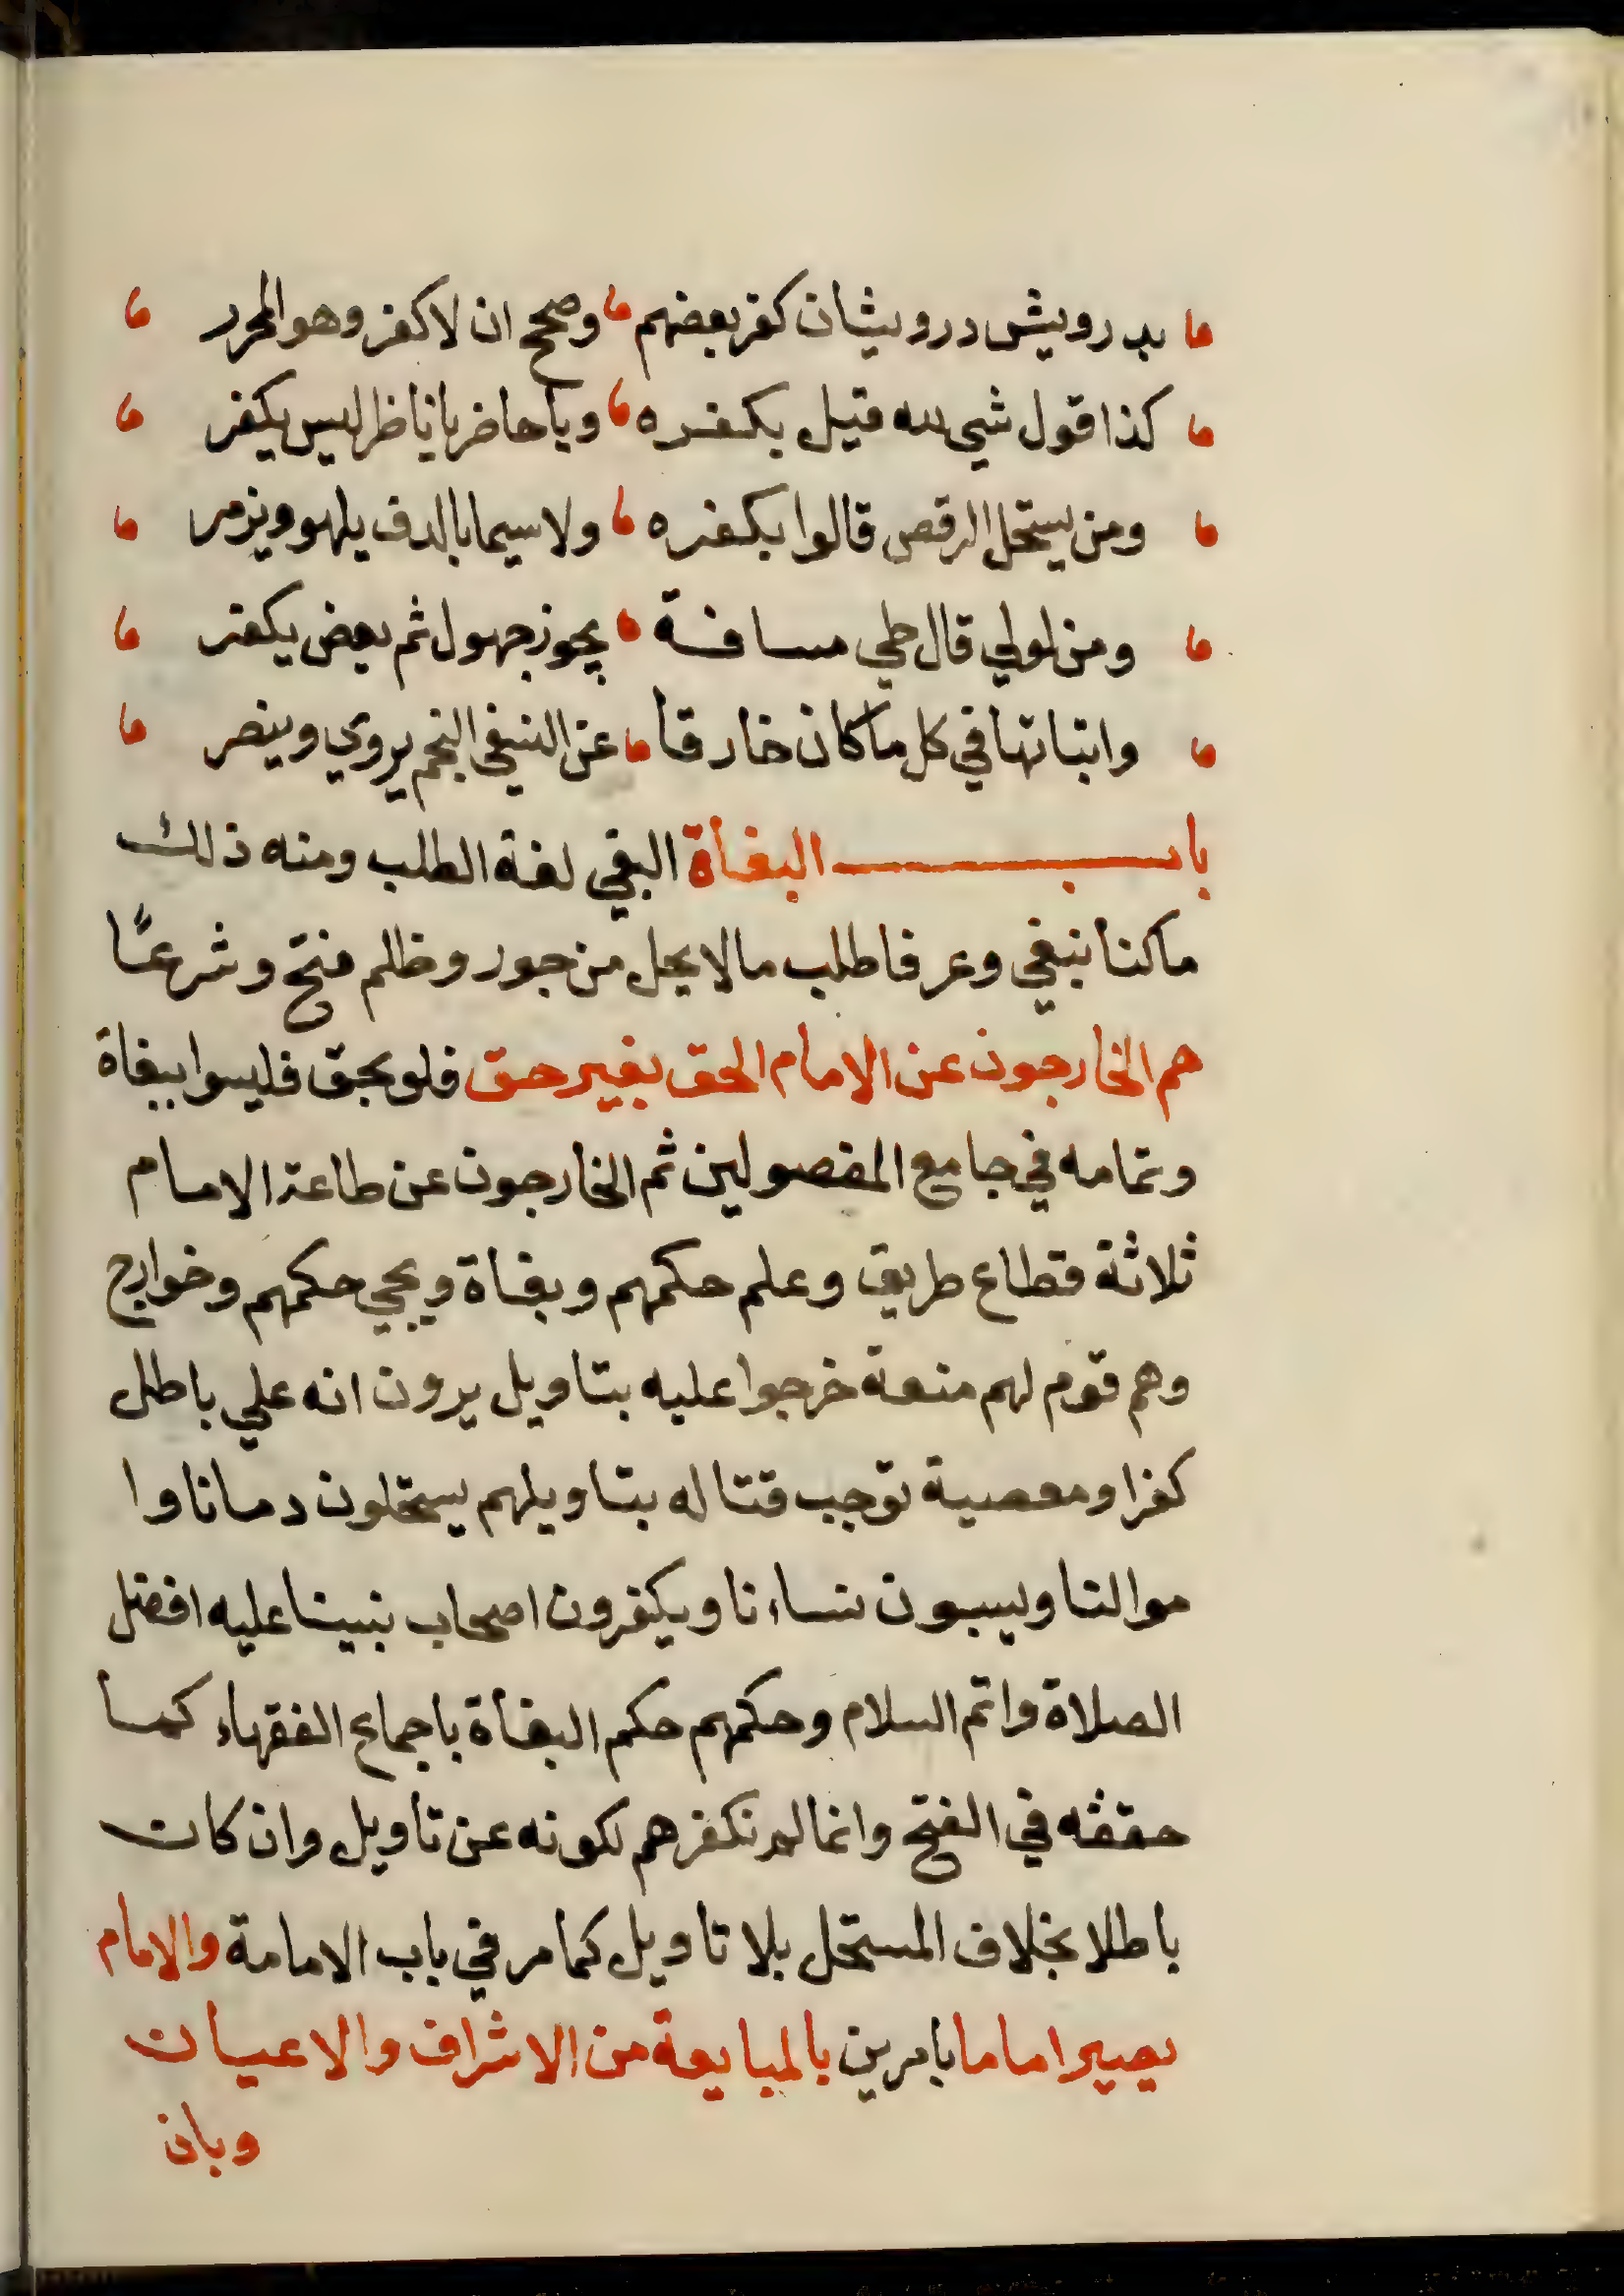 بدرويش درويشان كفر بعضهم وصحح ان لا كفر وهو المحرر
كذا قول شي لله قيل بكفره ويا حاضر يا ناظر ليس يكفر
ومن يستحل الرقص قالوا بكفره ولا سيما بالدف يلهو ويزمر
ومن لولي قال طي مسافة يجوز جهول ثم بعض يكفر
واثباتها في كل ما كان خارقا عن النسفي النجم يروي وينصر
باب البغاة البغي لغة الطلب ومنه ذلك
ما كنا نبغي وعرفا طلب ما لا يحل من جور وظلم فتح وشرعًا
هم الخارجون عن الامام الحق بغير حق فلو بحق فليسوا ببغاة
وتمامه في جامع الفصولين ثم الخارجون عن طاعة الامام
ثلاثة قطاع طريق وعلم حكمهم وبغاة ويجي حكمهم وخوارج
وهم قوم لهم منعة خرجوا عليه بتاويل يرون انه علي باطل
كفر او معصية توجب قتاله بتاويلهم يستحلون دمانا وا
موالنا ويسبون نساءنا ويكفرون اصحاب نبينا عليه افضل
الصلاة واتم السلام وحكمهم حكم البغاة باجماع الفقهاء كما
حققه في الفتح وانما لم نكفرهم لكونه عن تاويل وان كان
باطلا بخلاف المستحل بلا تاويل كما مر في باب الامامة والامام
يصير اماما بامرين بالمبايعة من الاشراف والاعيان
وبان